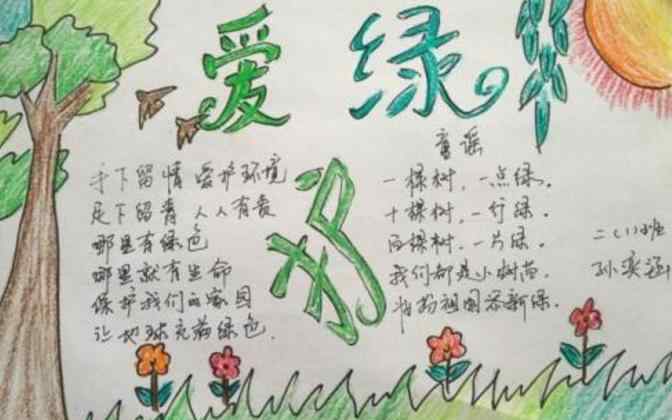 爱绿护
手下留情 爱护环境
足下留青 人人有责
哪里有绿色
哪里就有生命
保护我们的家园
让地球充满绿色.
童谣
一棵树，一点绿。
十棵树，一行绿。
百棵树，一片绿。
我们都是小树苗，
为祖国添新绿。
二（1）班
孙奕涵